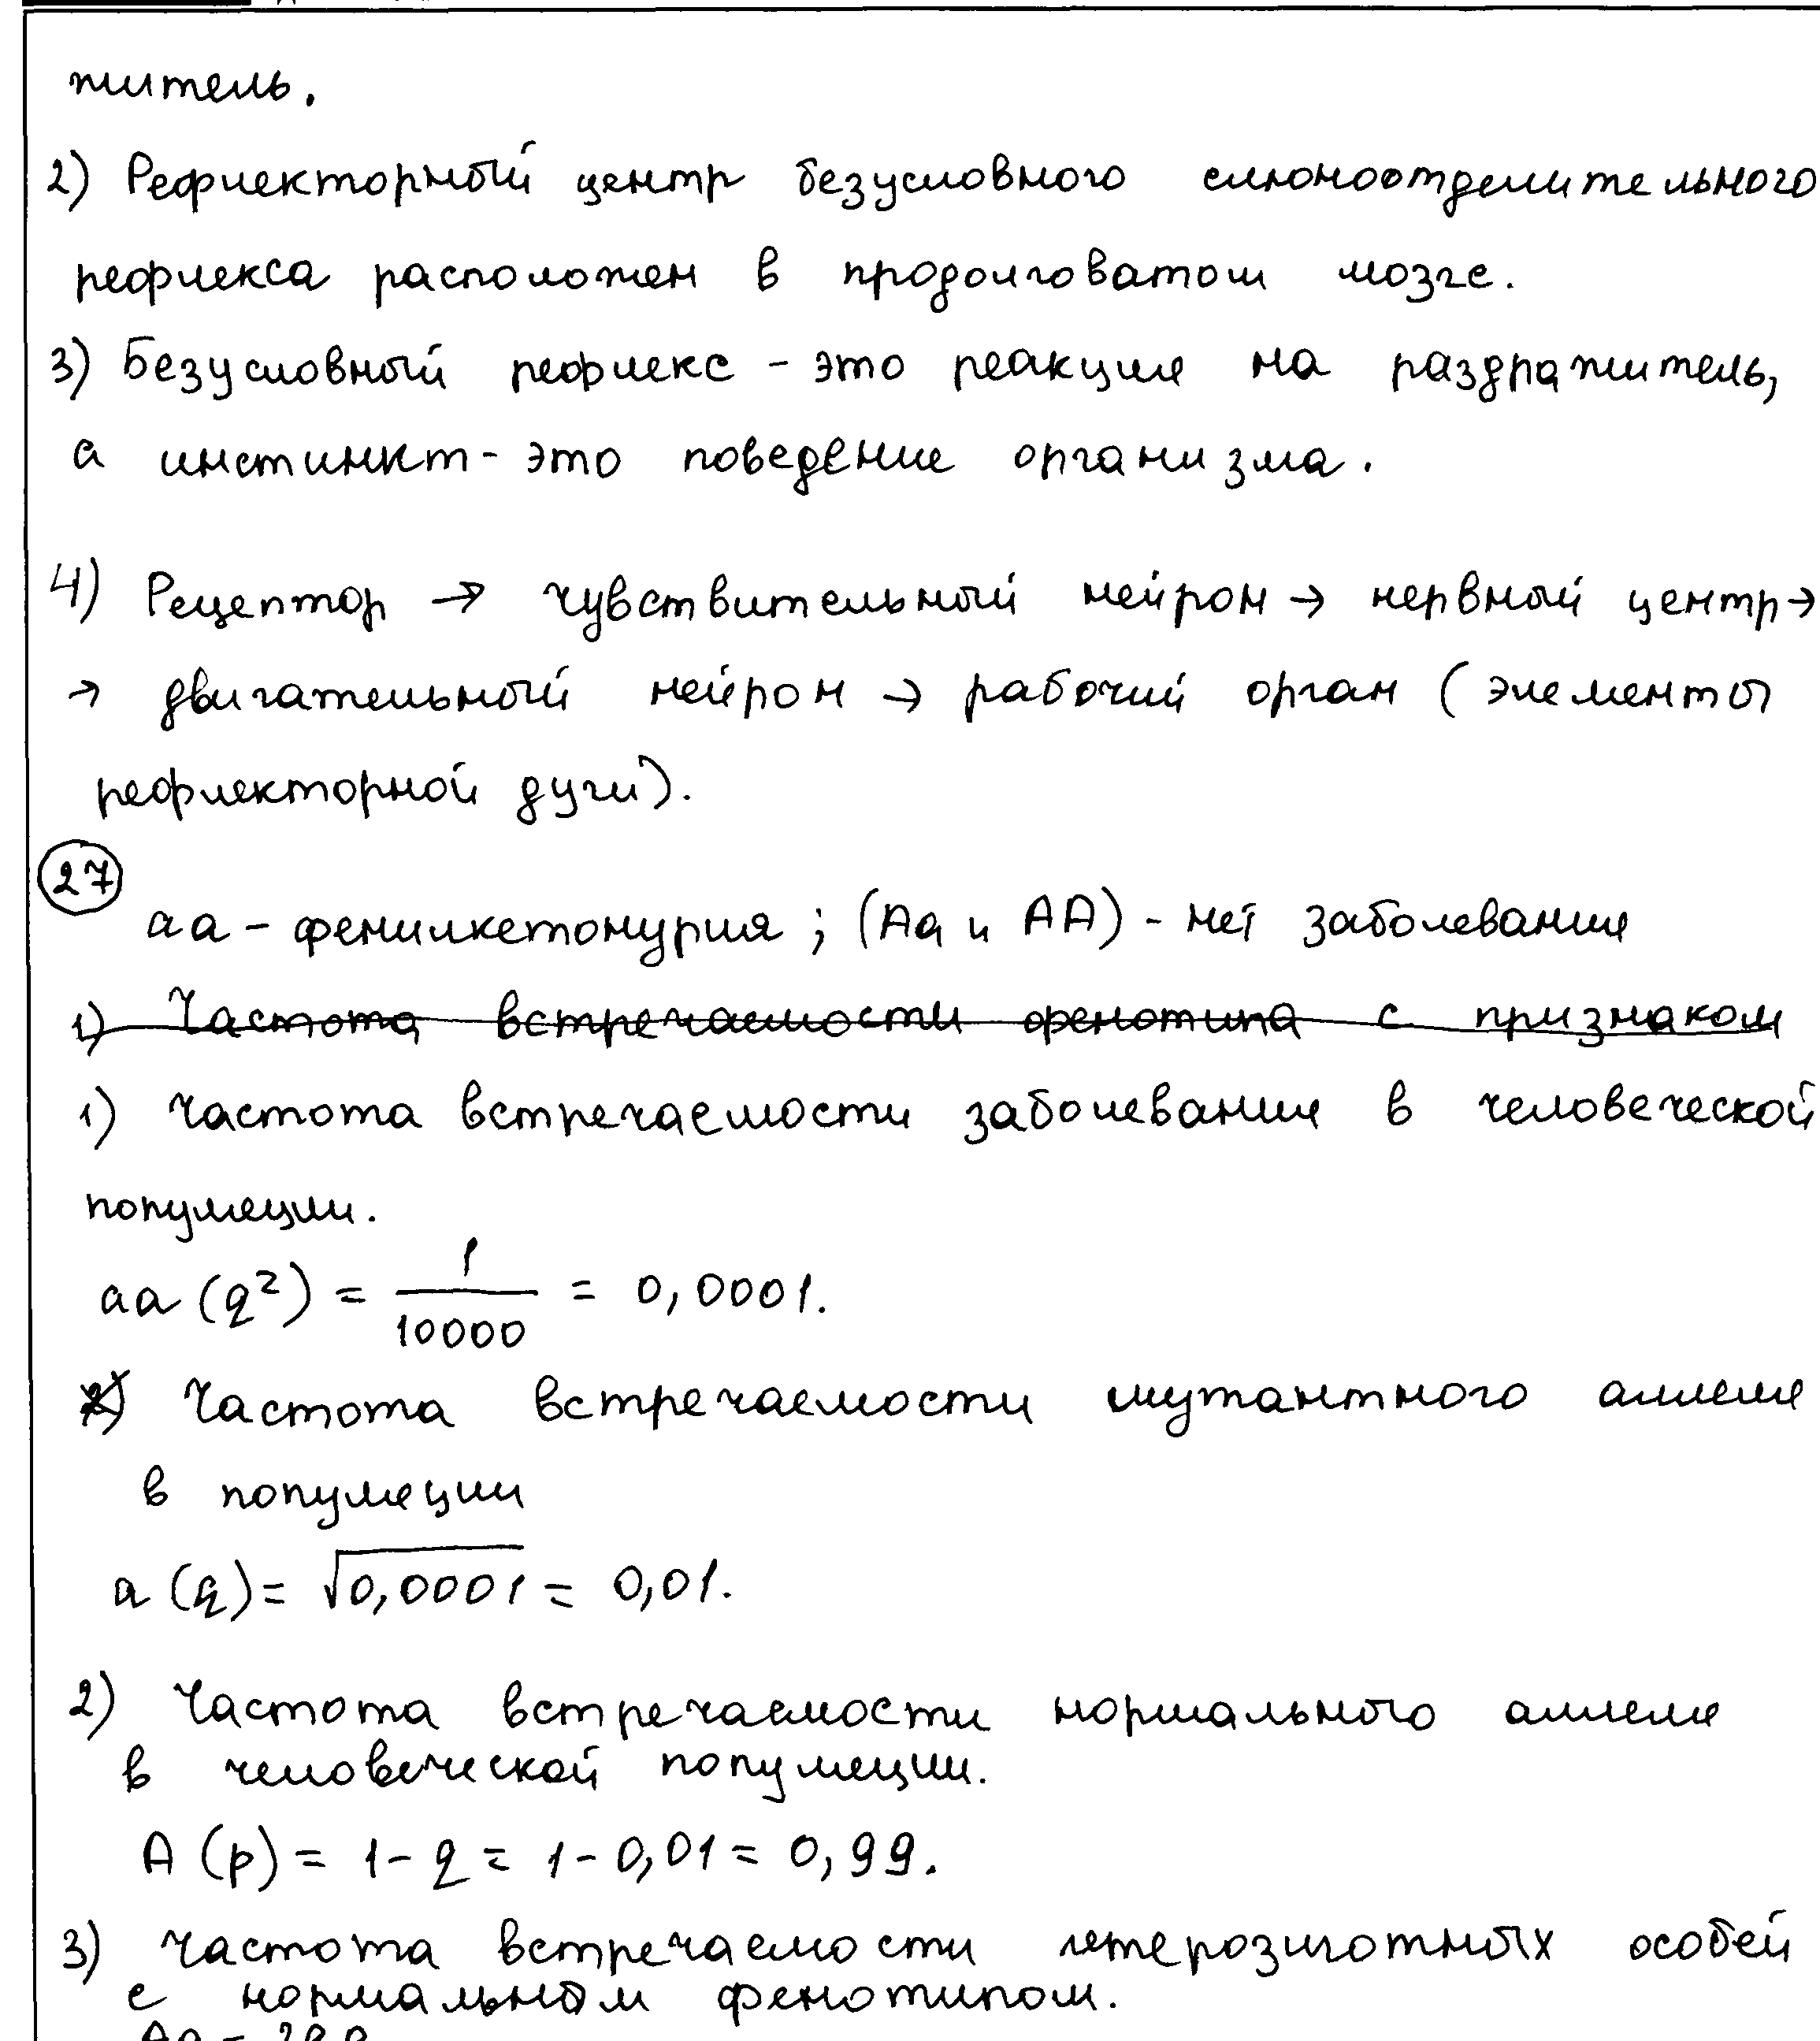 житель.
2) Рефлекторный центр безусловного слюноотделительного
рефлекса расположен в продолговатом мозге.
3) Безусловный рефлекс - это реакция на раздражитель,
а инстинкт - это поведение организма.
4) Рецептор → чувствительный нейрон → нервный центр →
→ двигательный нейрон → рабочий орган (элементы
рефлекторной дуги).
27
аа - фенилкетонурия ; (Аа и АА) - нет заболевания
1) Частота встречаемости фенотипа с признаком
1) Частота встречаемости заболевания в человеческой
популяции.
аа (q²) = 1/10000 = 0,0001.
2) Частота встречаемости мутантного аллеля
в популяции
а (q) = √0,0001 = 0,01.
2) Частота встречаемости нормального аллеля
в человеческой популяции.
А (p) = 1 - q = 1 - 0,01 = 0,99.
3) Частота встречаемости гетерозиготных особей
с нормальным фенотипом.